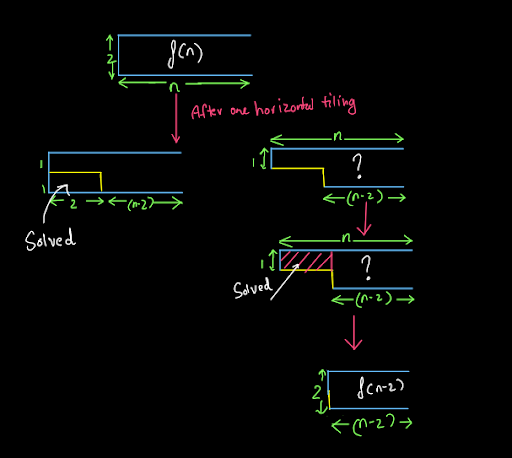 2
f(n)
n
After one horizontal tiling
1
1
2
(n-2)
Solved
n
1
?
(n-2)
n
1
?
Solved
(n-2)
2
f(n-2)
(n-2)